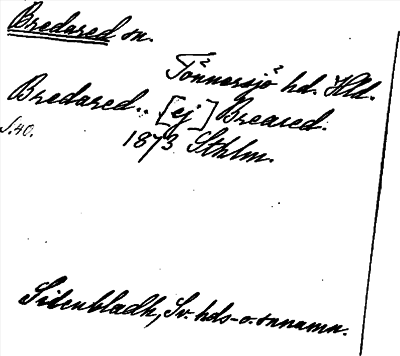 Bredared sn.
Tönnersjö hd. Hld.
Bredared.. [ej] Breared.
S.40.
1873 Sthlm.
Sidenbladh, Sv. hds- o. snnamn.